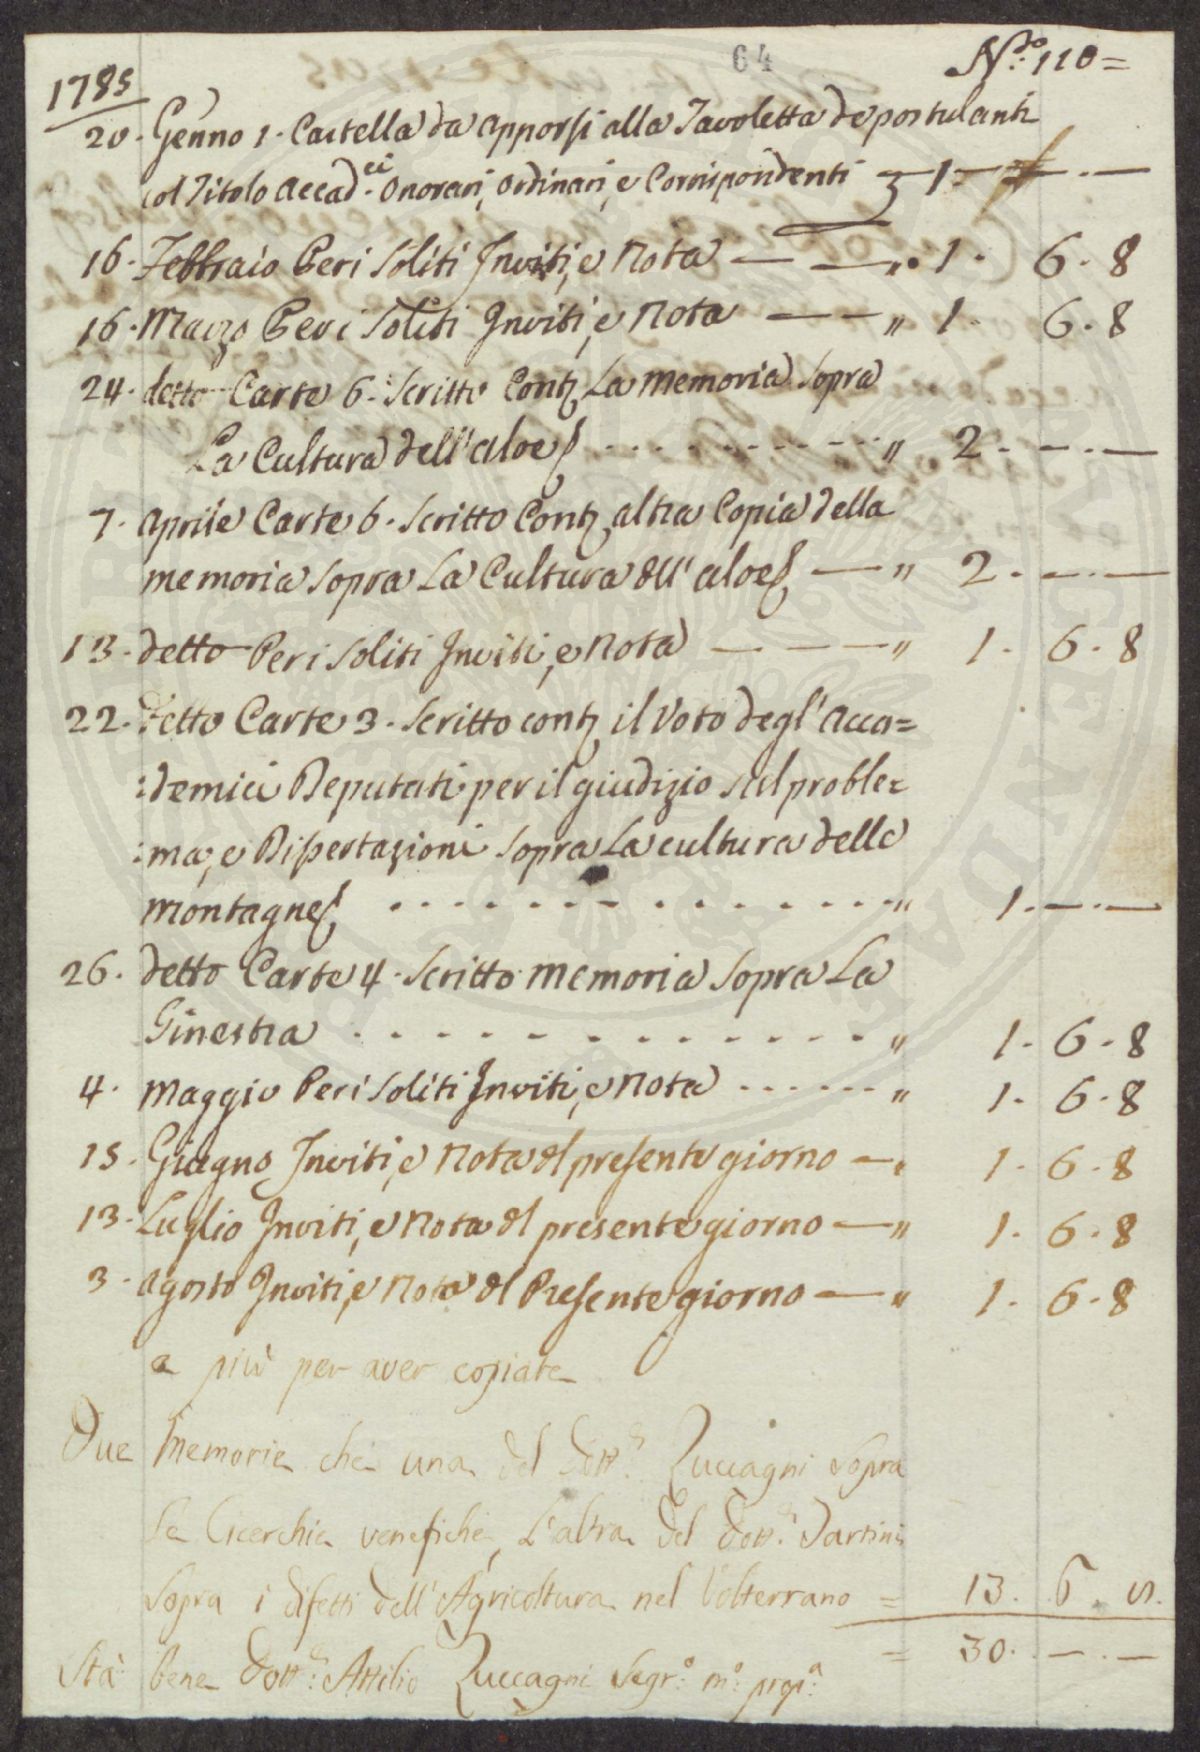 64
N.ro 110=
1785
20. Genno 1. Cartella da apporsi alla Tavoletta de postulanti
col Titolo Accad.ci Onorari, Ordinari, e Corrispondenti 1. — . —
16. Febbraio Per i soliti Inviti, e Nota — — „ 1. 6. 8
16. Marzo Per i Soliti Inviti, e Nota — — „ 1. 6. 8
24. detto Carte 6. Scritte Cont. La Memoria Sopra
La Cultura dell'aloe . . . . . . . . . . „ 2. — . —
7. Aprile Carte 6. Scritto Cont. altra Copia della
memoria Sopra La Cultura dell' aloe — „ 2. — . —
13. detto Per i Soliti Inviti, e Nota — — — „ 1. 6. 8
22. Detto Carte 3. Scritto cont. il Voto degl' Acca=
:demici Deputati per il giudizio sul proble=
:ma, e Dissertazioni Sopra La cultura delle
Montagne . . . . . . . . . . . . . . „ 1. — . —
26. detto Carte 4. Scritto Memoria Sopra La
Ginestra . . . . . . . . . . . . . „ 1. 6. 8
4. Maggio Per i Soliti Inviti, e Nota . . . . . . „ 1. 6. 8
15. Giugno, Inviti, e Nota del presente giorno — „ 1. 6. 8
13. Luglio Inviti, e Nota del presente giorno — „ 1. 6. 8
3. Agosto Inviti, e Nota del Presente giorno — „ 1. 6. 8
e più per aver copiate
Due Memorie che una del Dott.r Zuccagni sopra
le Cicerchie venefiche, L'altra del Dott.r Tartini
sopra i difetti dell'Agricoltura nel Volterrano = 13. 6.
= 30. — . —
Stà bene Dott.r Attilio Zuccagni Segr.o m.o prop.a